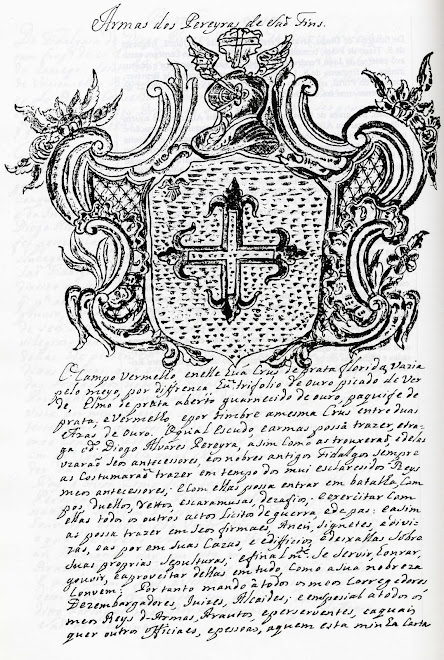 Armas dos Pereyras de Saõ Fins.
O Campo Vermelho, e nelle hua Crus de prata florida, vazia
pelo meyo, por difrença hũ trifolio de ouro picado de Ver
de, Elmo de prata aberto guarnecido de ouro, paquife de
prata, e Vermelho, e por timbre a mesma Crus entre duas
azas de ouro. O qual escudo e armas possa trazer, e tra
ga o d.º Diogo Alvares Pereyra, asim como as trouxeraõ, e delas
uzaraõ seos antecessores, e os nobres antigos fidalgos sempre
as Costumaraõ trazer em tempo dos mui esclaresidos Reys
meos antecessores; e Com ellas possa entrar em batalha, Cam
pos, duellos, Rettos, escaramusas, desafios; e exercitar Com
ellas todos os outros actos licitos de guerra, e de pas: e asim
as possa trazer em seos firmaes, Aneis, signetes, e divi
zas, e as por em suas Cazas, e edificios, e deixallas sobre
suas proprias sepulturas: e final m.te Se servir, honrar,
gouvir, e aproveitar dellas em tudo, Como a sua nobreza
Convem: Portanto mando a todos os meos Corregedores
Dezembargadores, Juizes, Alcaides; e em special a todos os
meos Reys d-Armas, Arautos, e perserventes, e a quais
quer outros officiaes, e pessoas, a quem esta minha Carta